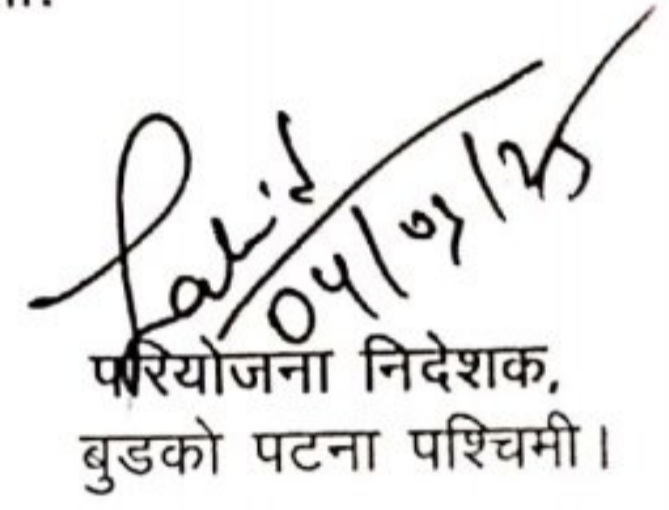 04/03/25
परियोजना निदेशक,
बुडको पटना पश्चिमी।